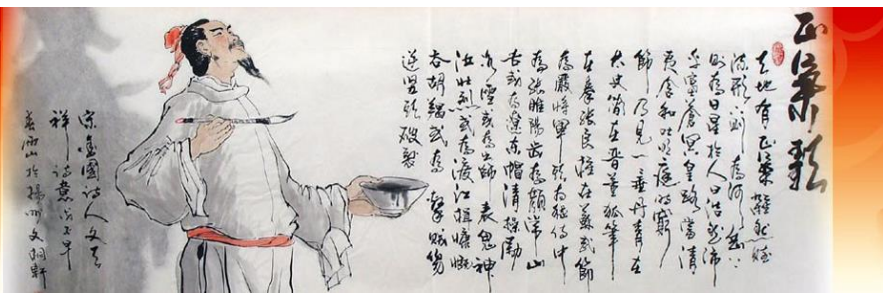 正氣歌
天地有正氣雜然賦
流形下則為河岳上
則為日星於人曰浩然沛
乎塞蒼冥皇路當清
夷含和吐明庭時窮
節乃見一一垂丹青在
太史簡在晉董狐筆
在秦張良椎在蘇武節
為嚴將軍頭為嵇侍中
為張睢陽齒為顏常山
舌或為遼東帽清操勵
冰雪或為出師表鬼神
泣壯烈或為渡江楫慷慨
吞胡羯或為擊賊笏
逆豎頭破裂
宋愛國詩人文天
祥詩意
西山於揚州文桐軒